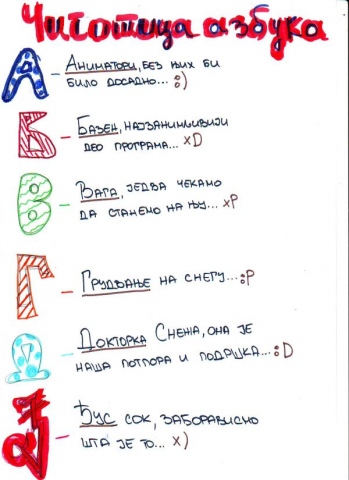 Чиготица азбука
А – Аниматори, без њих би
било досадно... :)
Б – Базен, најзанимљивији
део програма... xD
В – Вага, једва чекамо
да станемо на њу... xP
Г – Грудвање на снегу...:P
Д – Докторка Снежа, она је
наша потпора и подршка...:D
Ђ – Ђус сок, заборависмо
шта је то... x)